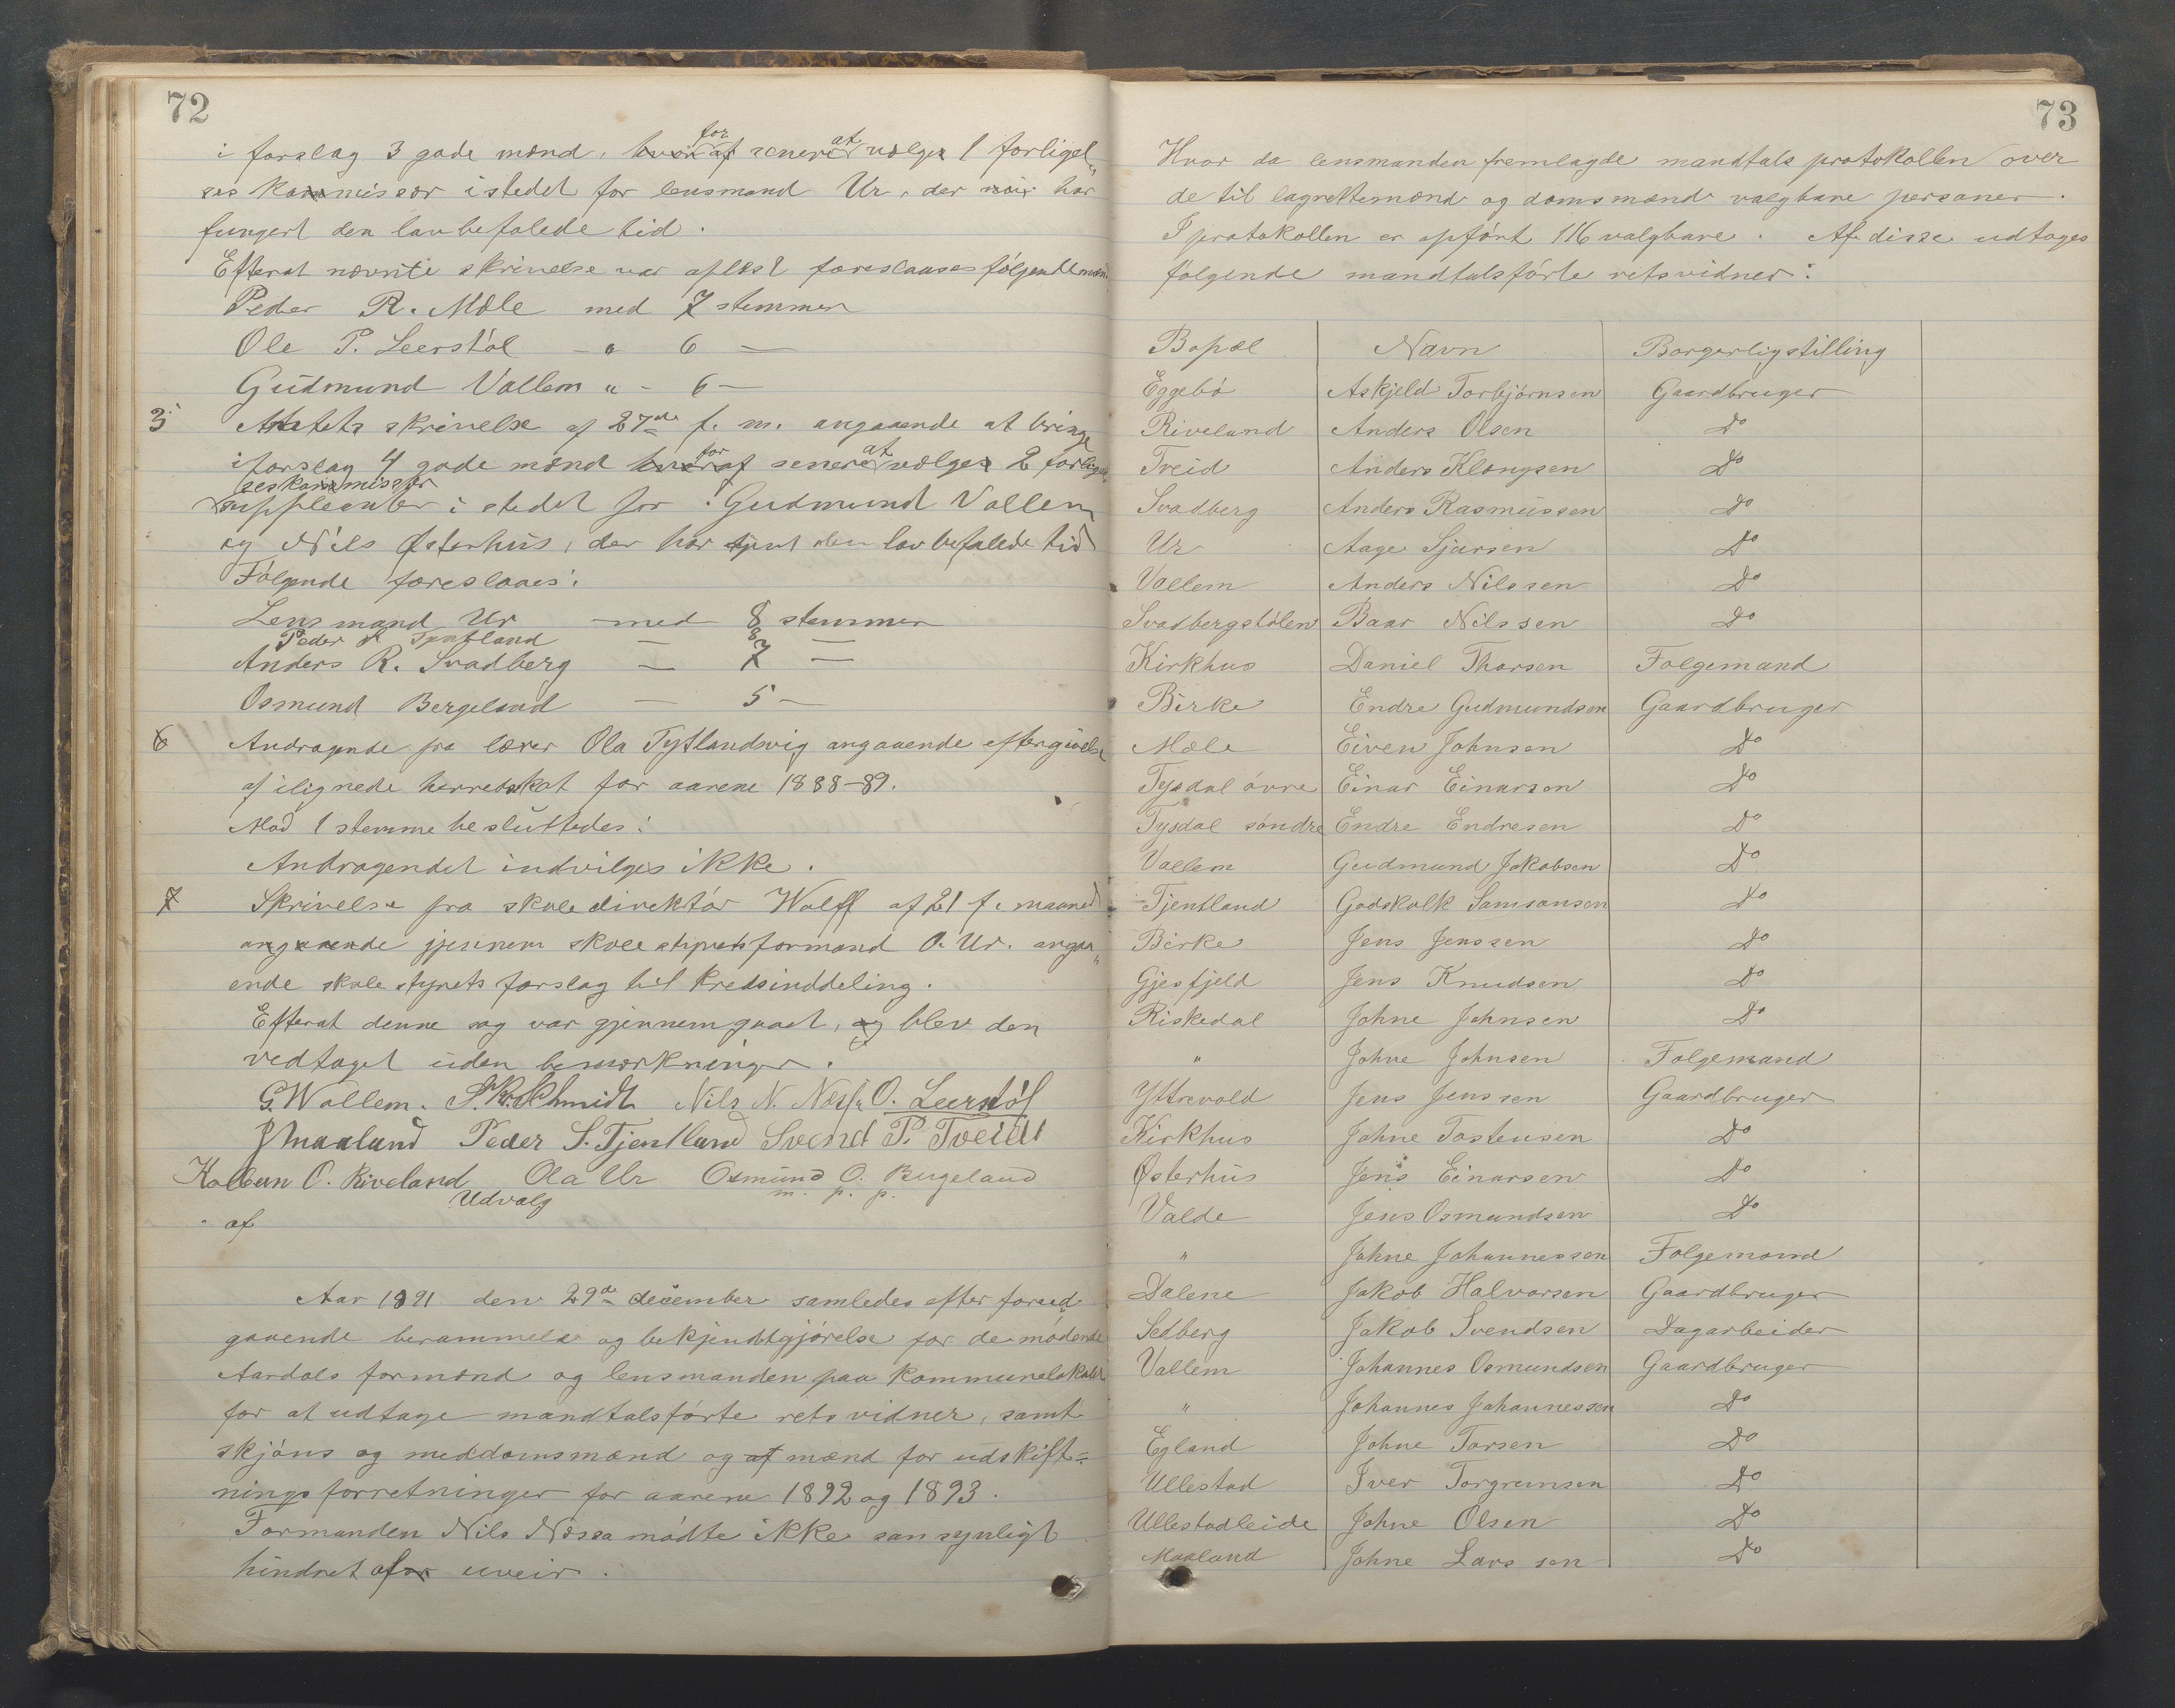 72
i forslag 3 gode mænd, hvoraf for senere at vælges 1 forligel„
ses kommissær istedet for lensmand Ur, der nu har
fungert den lovbefalede tid.
Efterat nævnte skrivelse var oplæst foreslaaes følgende mænd
Peder R. Mæle med 7 stemmer
Ole P. Leerstøl — " 6 —
Gudmund Vallem " - 6 —
5 Amtets skrivelse af 27de f. m. angaaende at bringe
i forslag 4 gode mænd hvoraf for senere at vælges 2 forligel„
seskommissær
suppleanter i stedet for: Gudmund Vallem
og Nils Østerhus, der har tjent den lovbefalede tid
Følgende foreslaaes:
Lensmand Ur med 8 stemmer
Peder S Tjentland — 8 —
Anders R. Svadberg — 7 —
Osmund Bergeland — 5 —
6 Andragende fra lærer Ola Tytlandsvig angaaende eftergivelse
af ilignede herredsskat for aarene 1888-89.
Mod 1 stemme besluttedes:
Andragendet indvilges ikke.
7 Skrivelse fra skoledirektør Wolff af 21 f. maaned
angaaende gjennem skolestyrets formand O. Ur. angaa„
ende skolestyrets forslag til kredsinddeling.
Efterat denne sag var gjennemgaaet, og blev den
vedtaget uden bemærkninger.
G. Wallem. S. K. Schmidt Nils N. Næssa O. Leerstøl
J Maaland Peder S. Tjentland Svend P. Tveidt
Kolbeen O. Riveland Ola Ur Osmund O. Bergeland
m. p. p.
Udvalg
af
Aar 1891 den 29de december samledes efter forud„
gaaende berammelse og bekjendtgjørelse for de mødende
Aardals formænd og lensmanden paa kommunelokalet
for at udtage mandtalsførte retsvidner, samt
skjøns og meddomsmænd og af mænd for udskift=
ningsforretninger for aarene 1892 og 1893.
Formanden Nils Næssa mødte ikke sansynligt
hindret af uveir.
73
Hvor da lensmanden fremlagde mandtals protokollen over
de til lagrettemænd og domsmænd valgbare personer.
I protokollen er opført 116 valgbare. Af disse udtoges
følgende mandtalsførte retsvidner:
Bopæl Navn Borgerligstilling
Eggebø Askjeld Torbjørnsen Gaardbruger
Riveland Anders Olsen Do
Treid Anders Klongsen Do
Svadberg Anders Rasmussen Do
Ur Aage Sjursen Do
Vallem Anders Nilssen Do
Svadbergstølen Baar Nilssen Do
Kirkhus Daniel Thorsen Folgemand
Birke Endre Gudmundsen Gaardbruger
Mæle Eiven Johnsen Do
Tysdal øvre Einar Einarsen Do
Tysdal søndre Endre Endresen Do
Vallem Gudmund Jakobsen Do
Tjentland Godskalk Samsonsen Do
Birke Jens Jenssen Do
Gjesfjeld Jens Knudsen Do
Riskedal Johne Johnsen Do
" Johne Johnsen Folgemand
Yttrevold Jens Jenssen Gaardbruger
Kirkhus Johne Tostensen Do
Østerhus Jens Einarsen Do
Valde Jens Osmundsen Do
" Johne Johannessen Folgemand
Dalene Jakob Halvorsen Gaardbruger
Sedberg Jakob Svendsen Dagarbeider
Vallem Johannes Osmundsen Gaardbruger
" Johannes Johannessen Do
Egland Johne Torsen Do
Ullestad Iver Torgrimsen Do
Ullestadleide Johne Olsen Do
Maaland Johne Larssen Do